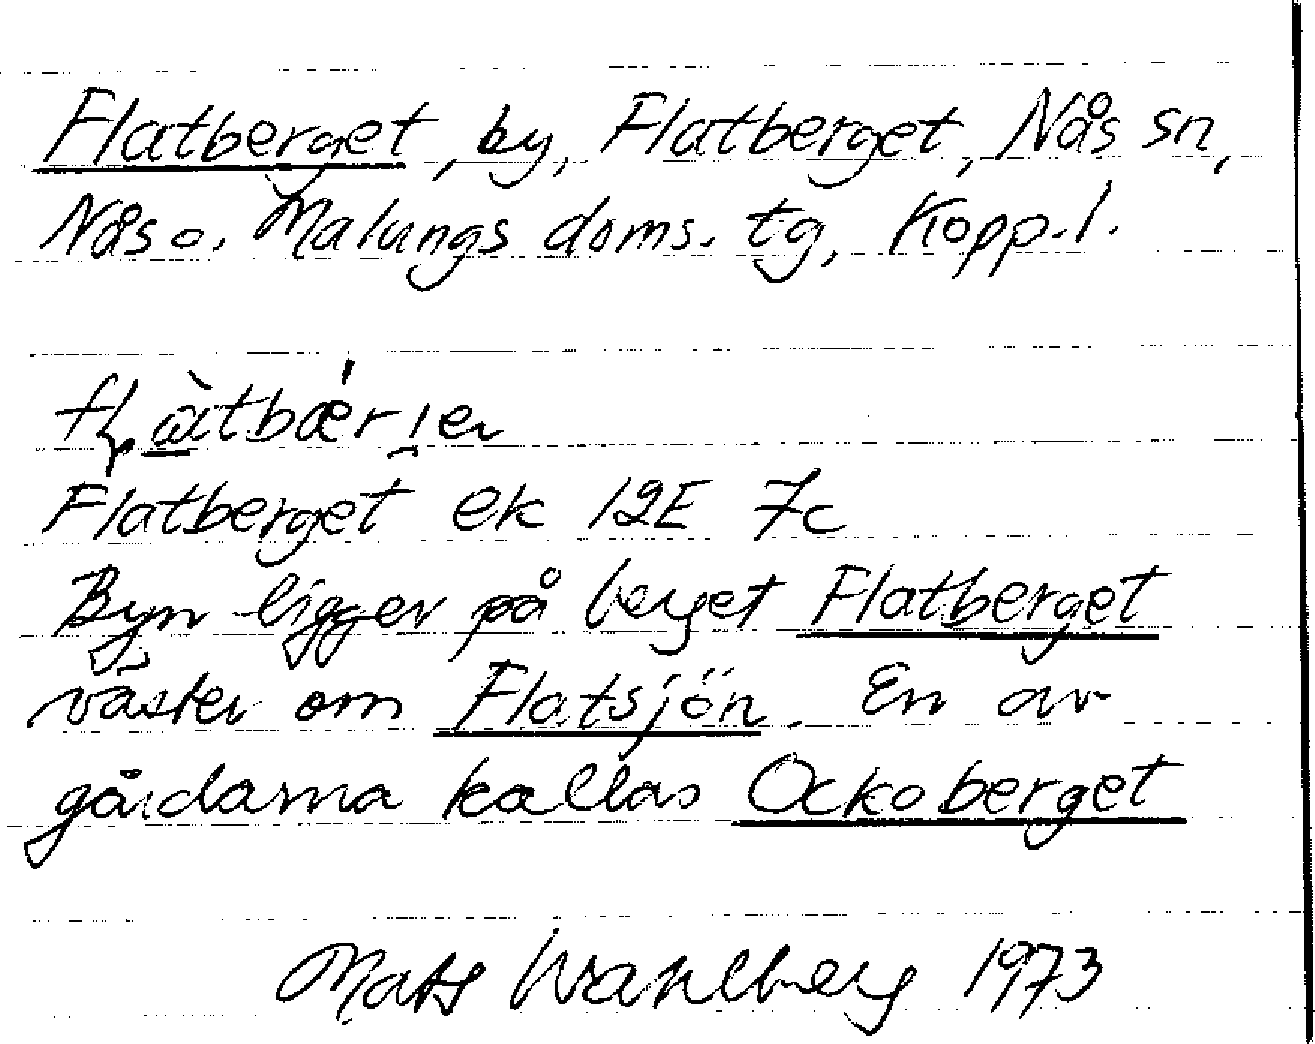 Flatberget, by, Flatberget, Nås sn,
Nås o. Malungs doms. tg, Kopp. l.
Flatberget ek 12E 7c
Byn ligger på berget Flatberget
väster om Flatsjön. En av
gårdarna kallas Ockoberget
Mats Wahlberg 1973